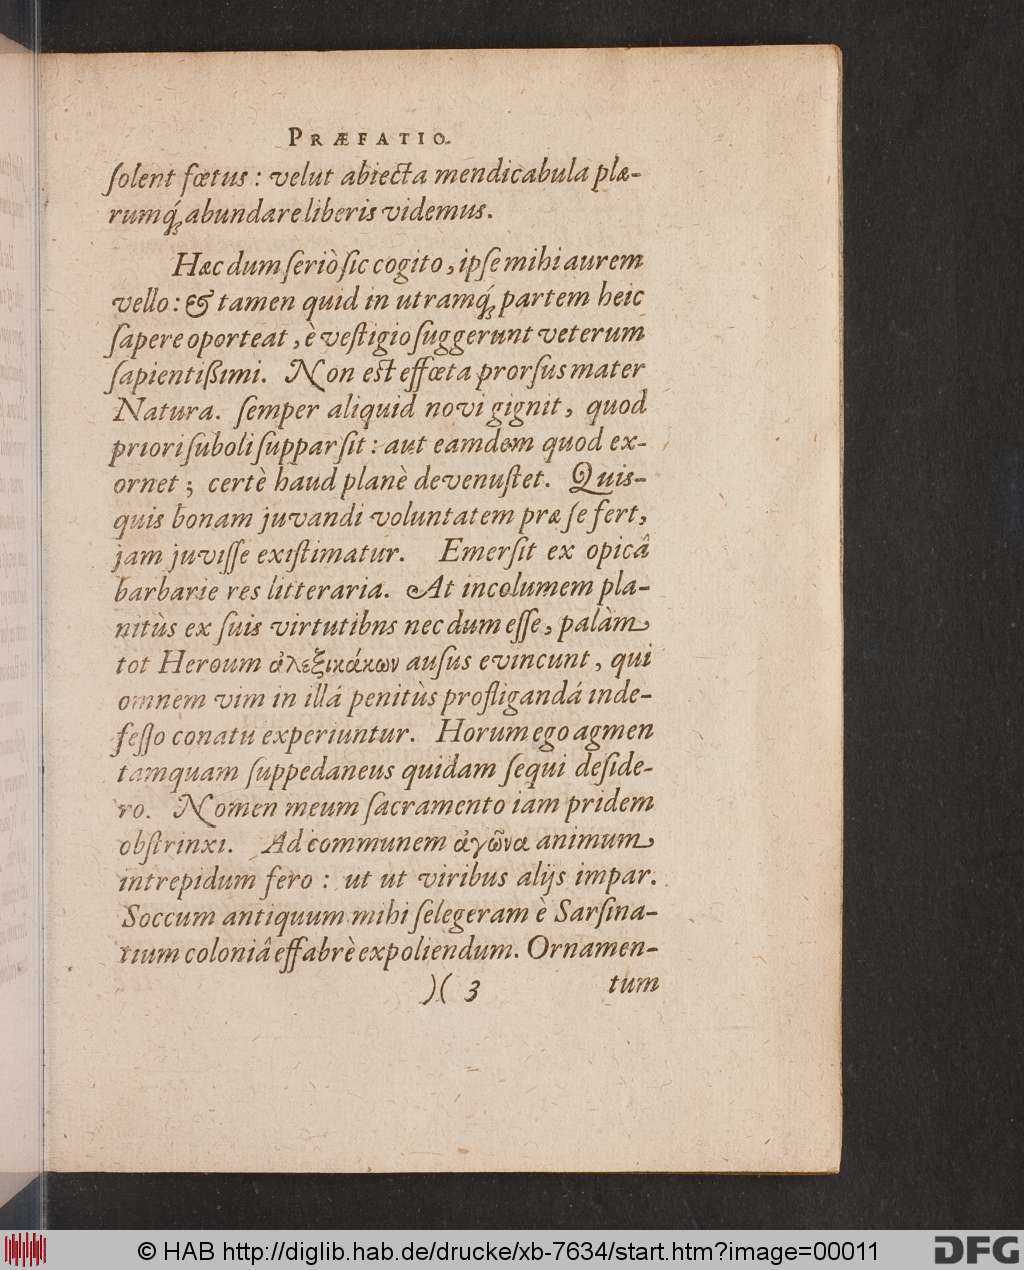 PRÆFATIO.
ſolent fœtus : velut abiecta mendicabula plæ-
rumq́; abundare liberis videmus.
Hæc dum ſeriò ſic cogito, ipſe mihi aurem
vello : & tamen quid in utramq́; partem heic
ſapere oporteat, è veſtigio ſuggerunt veterum
ſapientißimi. Non est effœta prorſus mater
Natura. ſemper aliquid novi gignit, quod
priori ſuboli ſuppar ſit : aut eamdem quod ex-
ornet ; certè haud planè devenuſtet. Quis-
quis bonam juvandi voluntatem præ ſe fert,
jam juviſſe exiſtimatur. Emerſit ex opicâ
barbarie res litteraria. At incolumem pla-
nitùs ex ſuis virtutibns nec dum eſſe, palàm
tot Heroum ἀλεξικάκων auſus evincunt, qui
omnem vim in illá penitùs profligandá inde-
feſſo conatu experiuntur. Horum ego agmen
tamquam ſuppedaneus quidam ſequi deſide-
ro. Nomen meum ſacramento iam pridem
obſtrinxi. Ad communem ἀγῶνα animum
intrepidum fero : ut ut viribus alijs impar.
Soccum antiquum mihi ſelegeram è Sarſina-
tium coloniâ effabrè expoliendum. Ornamen-
)( 3 tum
© HAB http://diglib.hab.de/drucke/xb-7634/start.htm?image=00011
DFG